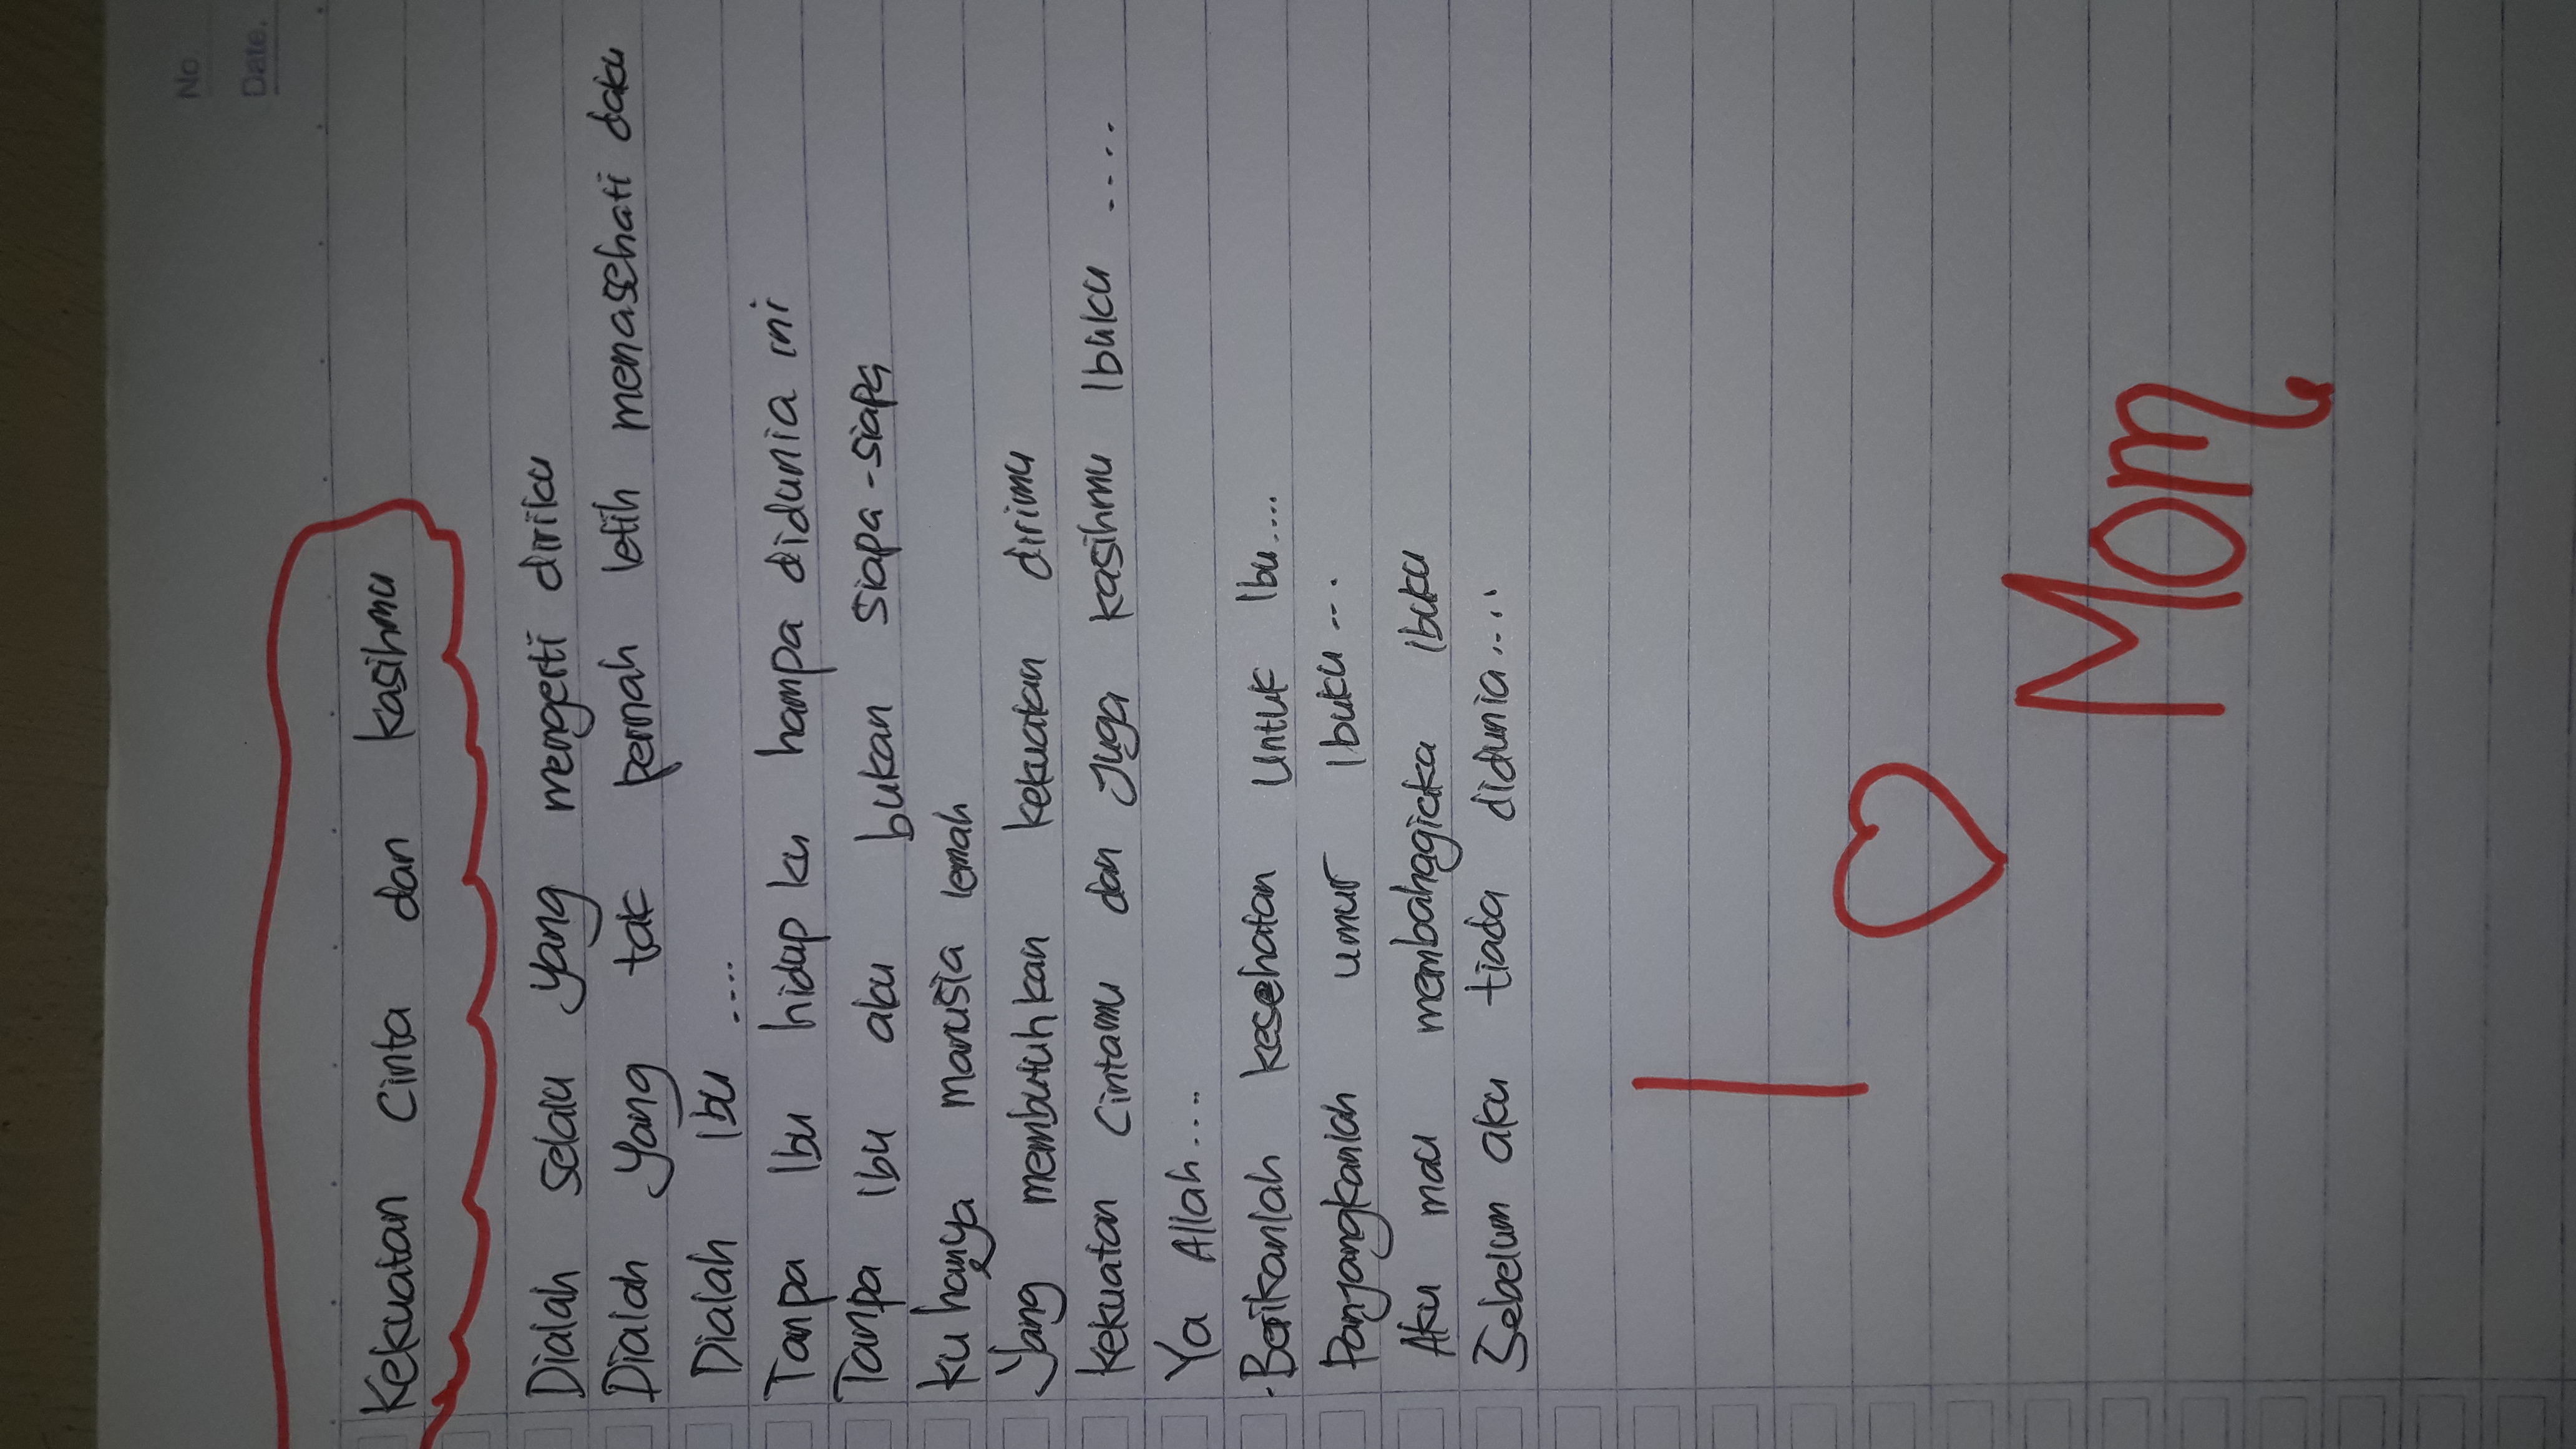 No.
Date.
Kekuatan Cinta dan Kasihmu
Dialah selalu yang mengerti diriku
Dialah yang tak pernah letih menasehati daku
Dialah Ibu ....
Tanpa Ibu hidup ku hampa didunia ini
Tanpa Ibu aku bukan siapa-siapa
ku hanya manusia lemah
Yang membutuhkan kekuatan dirimu
kekuatan cintamu dan juga kasihmu Ibuku ....
Ya Allah....
Berikanlah kesehatan untuk Ibu....
Panjangkanlah umur Ibuku...
Aku mau membahagiaka Ibuku
Sebelum aku tiada didunia....
I
♡
Mom